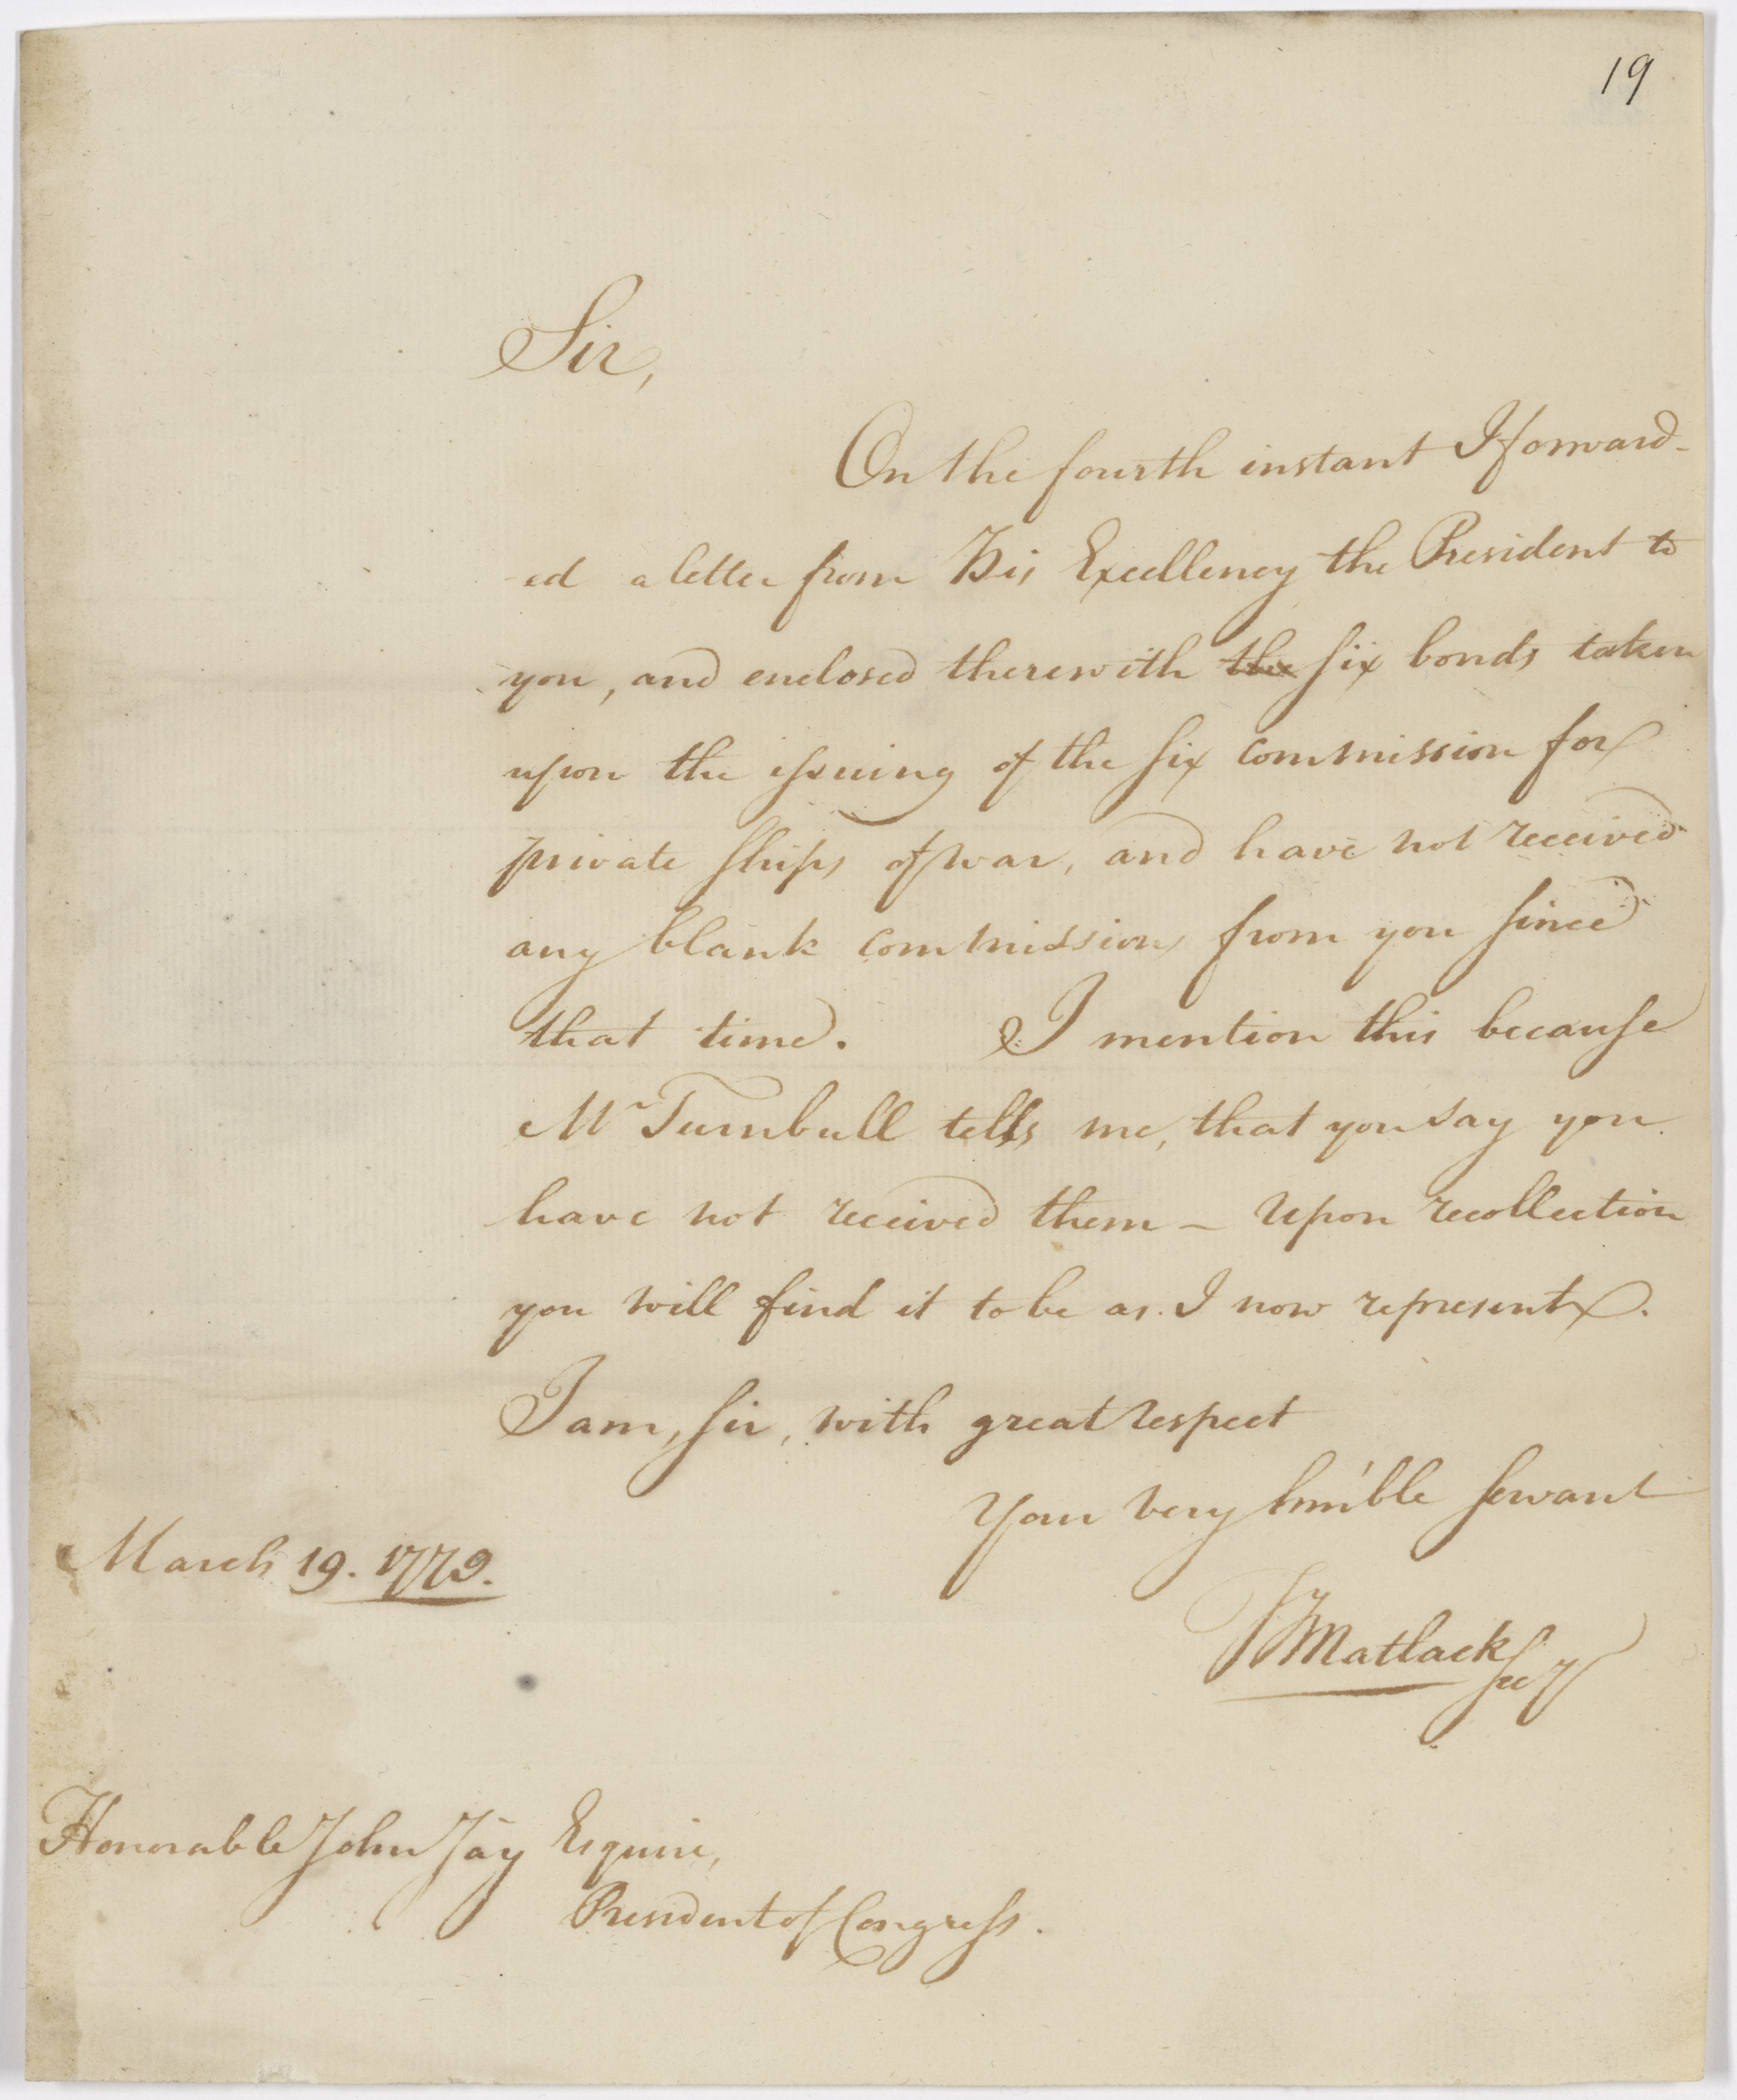 19
Sir,
On the fourth instant I forward-
ed a letter from His Excellency the President to
you, and enclosed therewith the six bonds taken
upon the issuing of the six commission for
private ships of war, and have not received
any blank commissions from you since
that time. I mention this because
Mr Turnbull tells me, that you say you
have not received them – Upon recollection
you will find it to be as I now represent.
I am, sir, with great respect
Your very hum'ble servant
March 19. 1779.
T Matlack Secy
Honorable John Jay Esquire,
President of Congress.